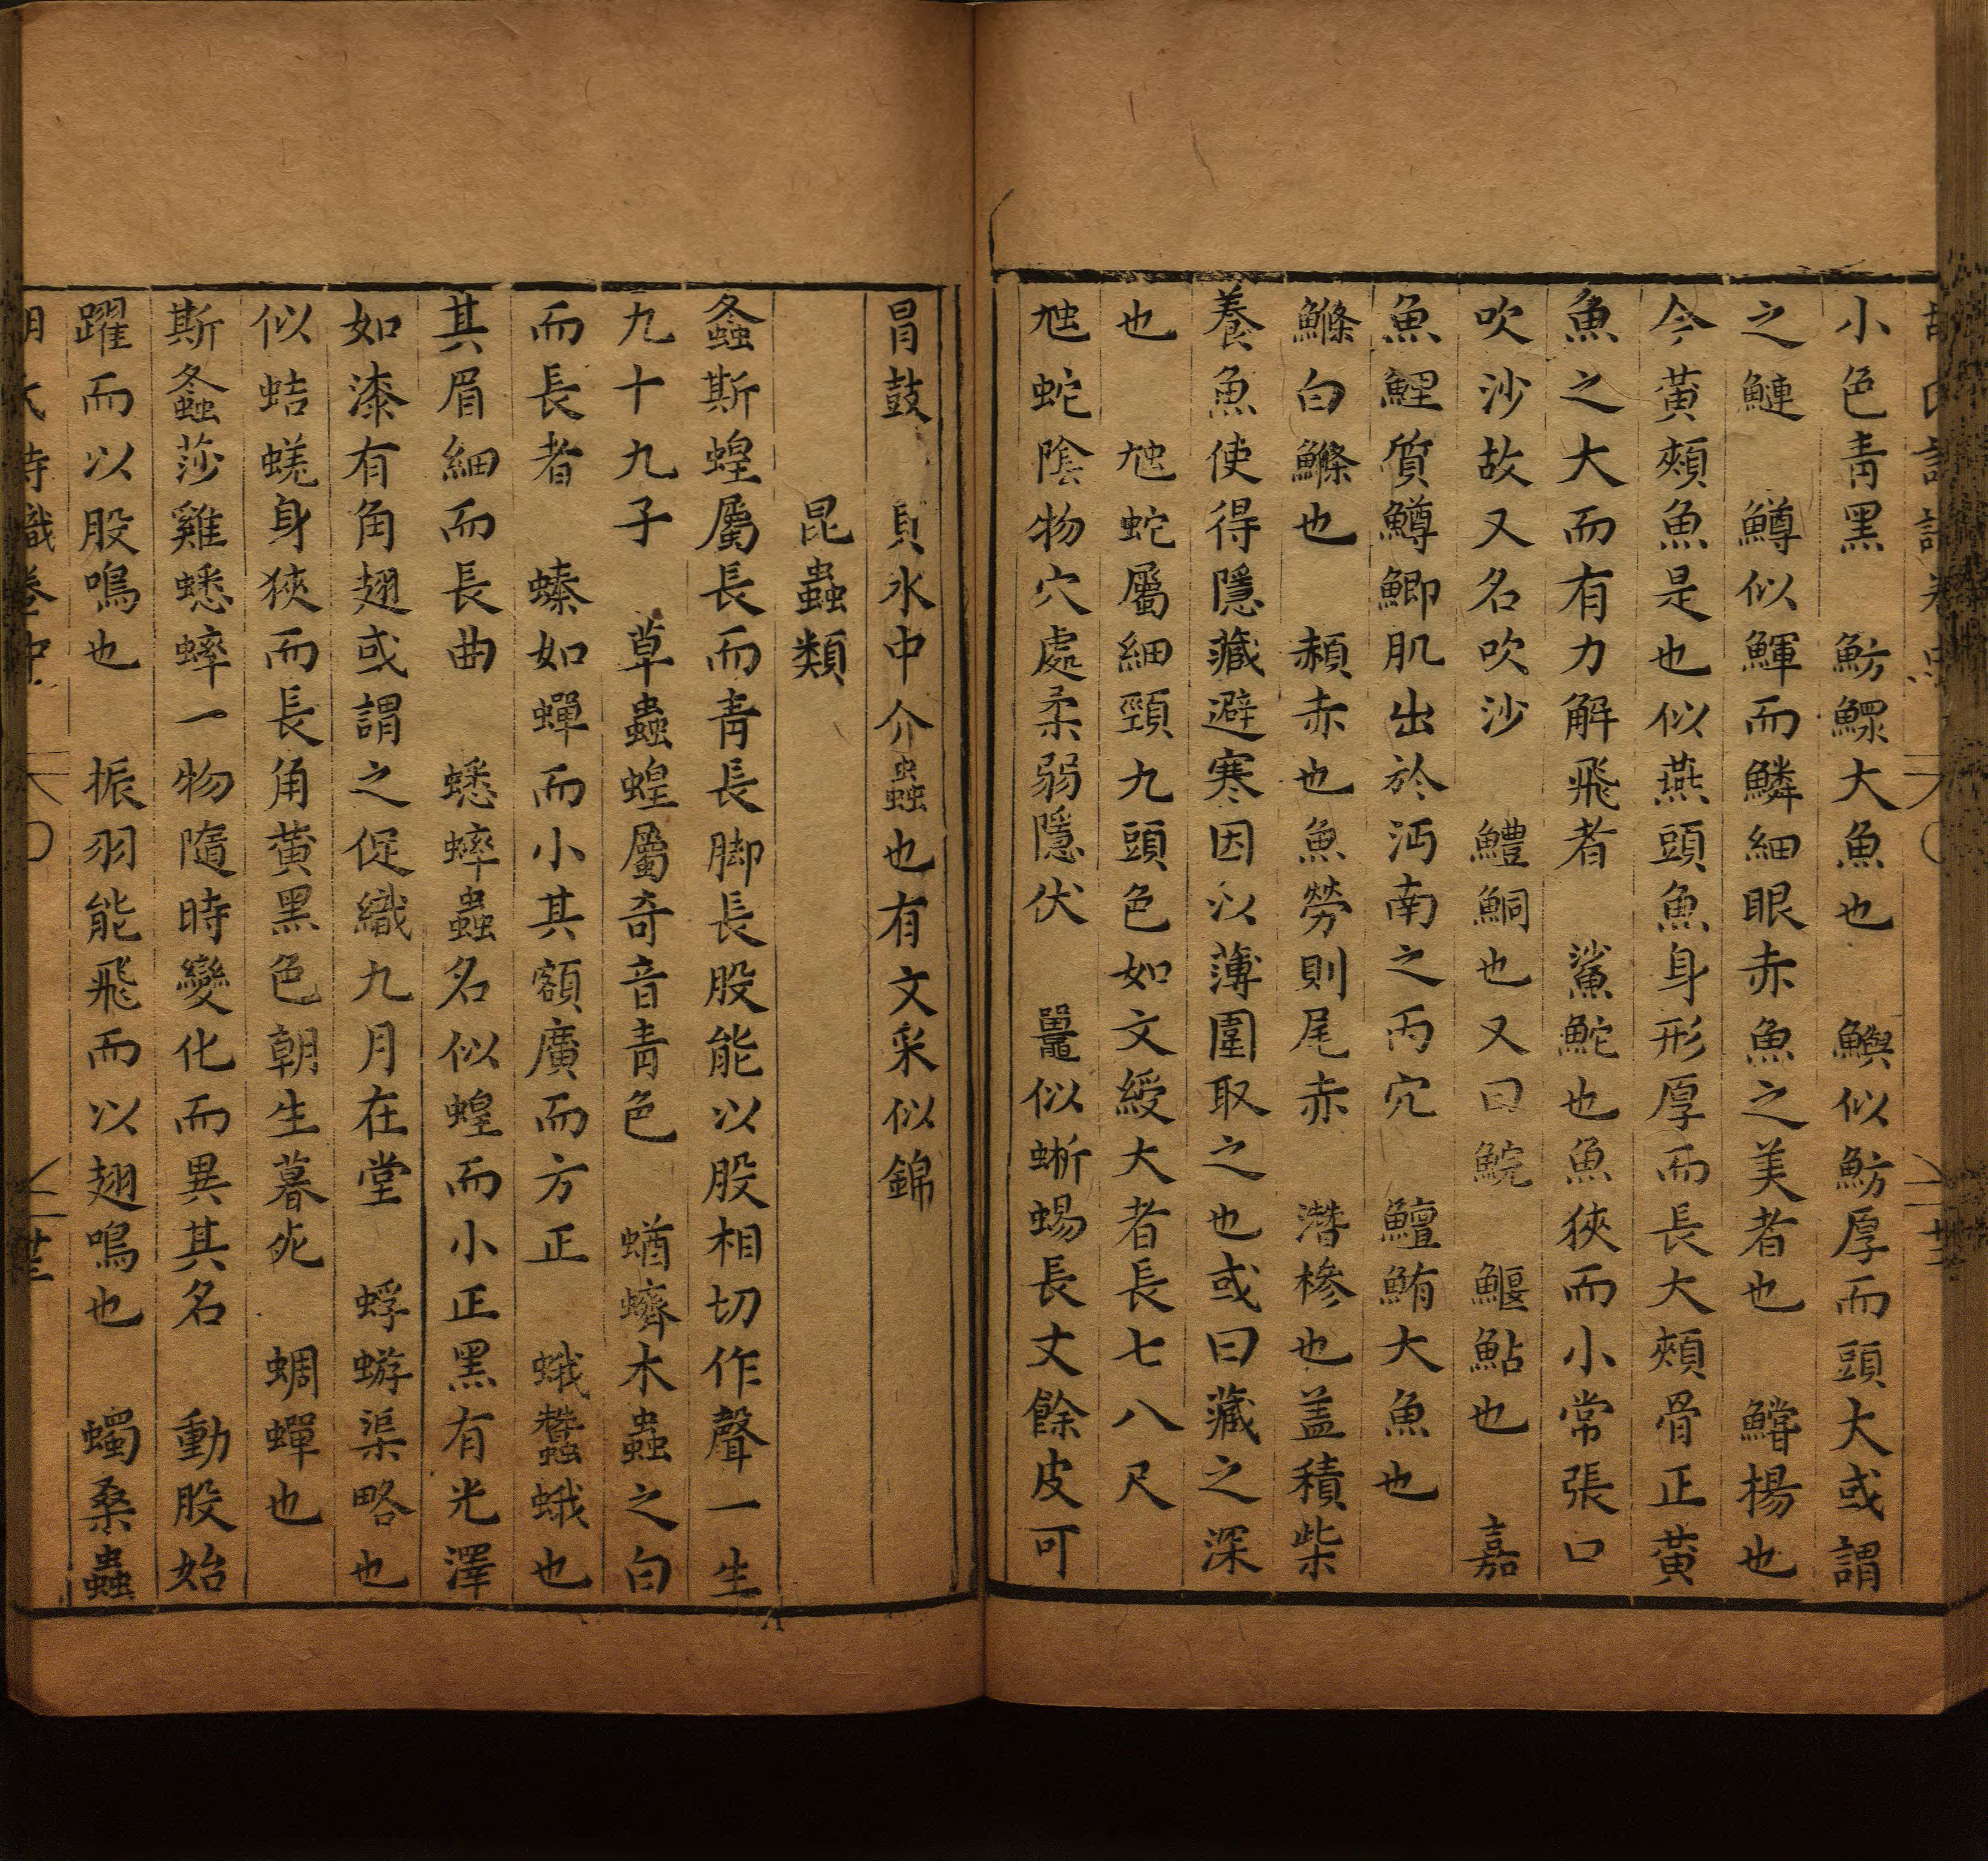 小色青黑　魴鱮大魚也　鱮似魴厚而頭大或謂
之鰱　鱒似鯶而鱗細眼赤魚之美者也　鱨揚也
今黃頰魚是也似燕頭魚身形厚而長大頰骨正黃
魚之大而有力解飛者　鯊鮀也魚狹而小常張口
吹沙故又名吹沙　鱧鮦也又曰鯇　鰋鮎也　嘉
魚鯉質鱒鯽肌出於沔南之丙穴　鱣鮪大魚也
鰷白鰷也　赬赤也魚勞則尾赤　潛槮也盖積柴
養魚使得隱藏避寒因以薄圍取之也或曰藏之深
也　虺蛇屬細頸九頭色如文綬大者長七八尺
虺蛇陰物穴處柔弱隱伏　鼉似蜥蜴長丈餘皮可
冐鼓　貝水中介蟲也有文采似錦
昆蟲類
螽斯蝗屬長而青長脚長股能以股相切作聲一生
九十九子　草蟲蝗屬奇音青色　蝤蠐木蟲之白
而長者　螓如蟬而小其額廣而方正　蛾蠶蛾也
其眉細而長曲　蟋蟀蟲名似蝗而小正黑有光澤
如漆有角翅或謂之促織九月在堂　蜉蝣渠略也
似蛣蜣身狹而長角黃黑色朝生暮死　蜩蟬也
斯螽莎雞蟋蟀一物隨時變化而異其名　動股始
躍而以股鳴也　振羽能飛而以翅鳴也　蠋桑蟲